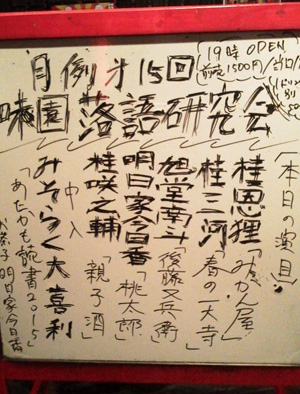 19時 OPEN
前売1500円/当日
月例才15回
味園 落語研究会
「本日の演目」
桂恩狸「みかん屋」
桂三河「春の一大寺」
旭堂南斗「後藤又兵衛」
明日家今日香「桃太郎」
桂咲之輔「親子酒」
中入
みそらく大喜利
「あたかも読書2015」
明日家今日香